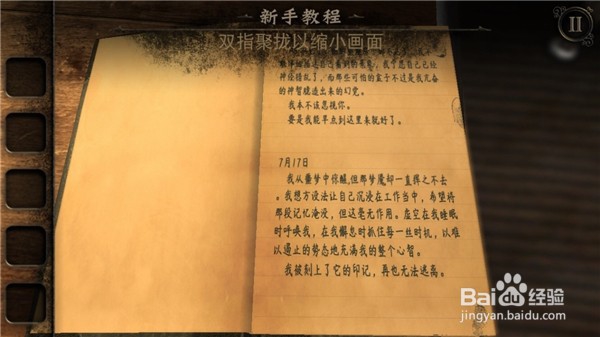 新手教程
双指聚拢以缩小画面
神经错乱了，而那些可怕的盒子不过是我亢奋
的神智臆造出来的幻觉。
我本不该忽视你。
要是我能早点到这里来就好了。
7月17日
我从噩梦中惊醒，但那梦魇却一直挥之不去
。我想方设法让自己沉浸在工作当中，希望将
那段记忆淹没，但这毫无作用。虚空在我睡眠
时呼唤我，在我懈怠时抓住每一丝时机，以难
以遏止的势态地充满我的整个心智。
我被刻上了它的印记，再也无法逃离。
Baidu经验
jingyan.baidu.com